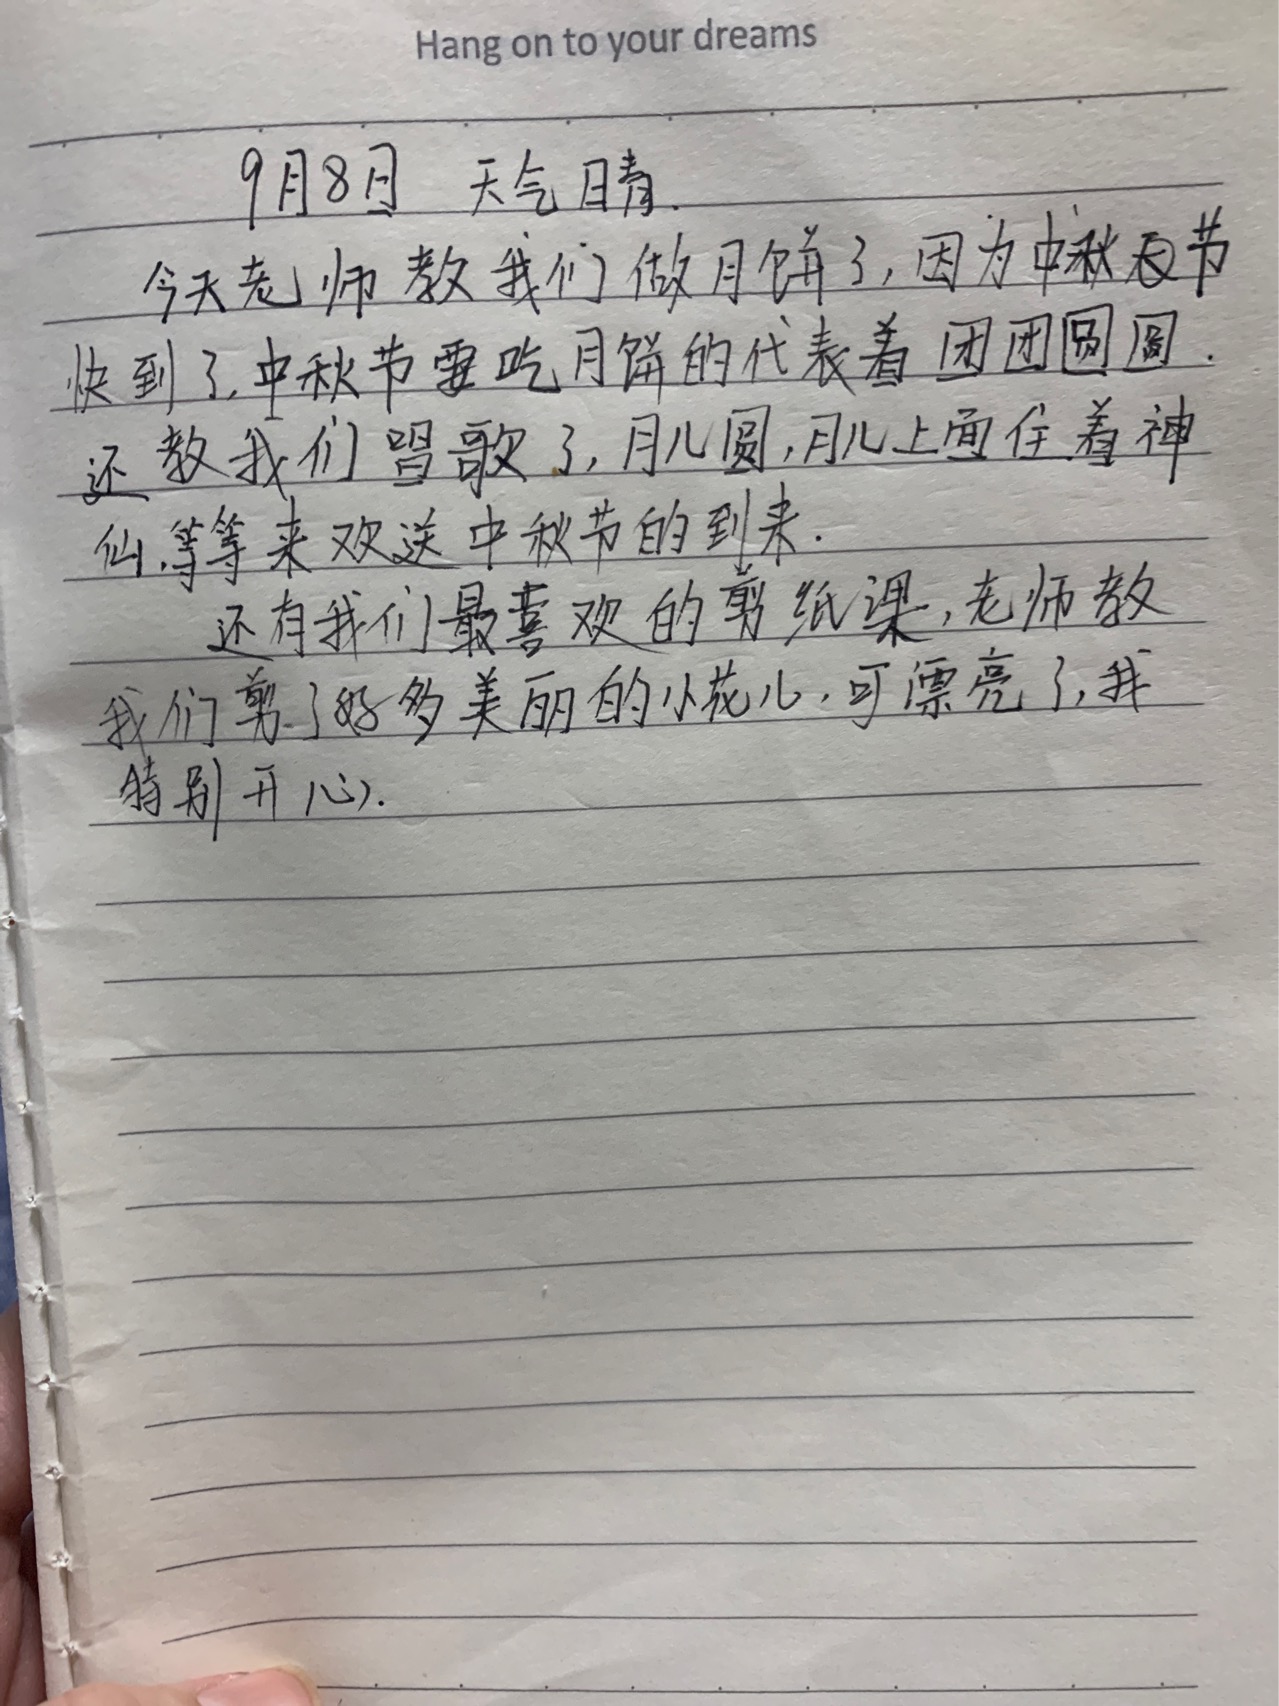 Hang on to your dreams
9月8日 天气日青.
今天老师教我们做月饼了,因为中秋节
快到了,中秋节要吃月饼的代表着团团圆圆.
还教我们唱歌了,月儿圆,月儿上面住着神
仙,等等来欢送中秋节的到来.
还有我们最喜欢的剪纸课,老师教
我们剪了好多美丽的小花儿,可漂亮了,我
特别开心).